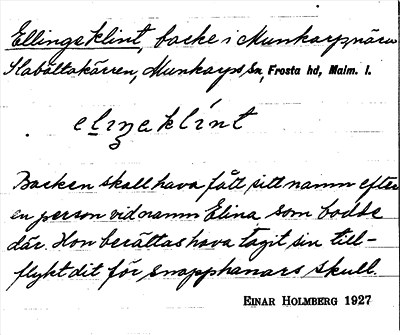 Ellingaklint, backe i Munkarp, nära
Slabältakärren, Munkarps Sn, Frosta hd, Malm. l.
elinaklint
Backen skall hava fått sitt namn efter
en person vid namn Elina som bodde
där. Hon berättas hava tagit sin till-
flykt dit för snapphanars skull.
EINAR HOLMBERG 1927